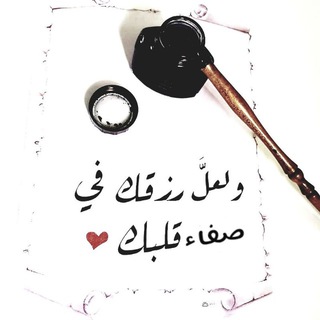 ولعلَّ رزقك في
صفاء قلبك